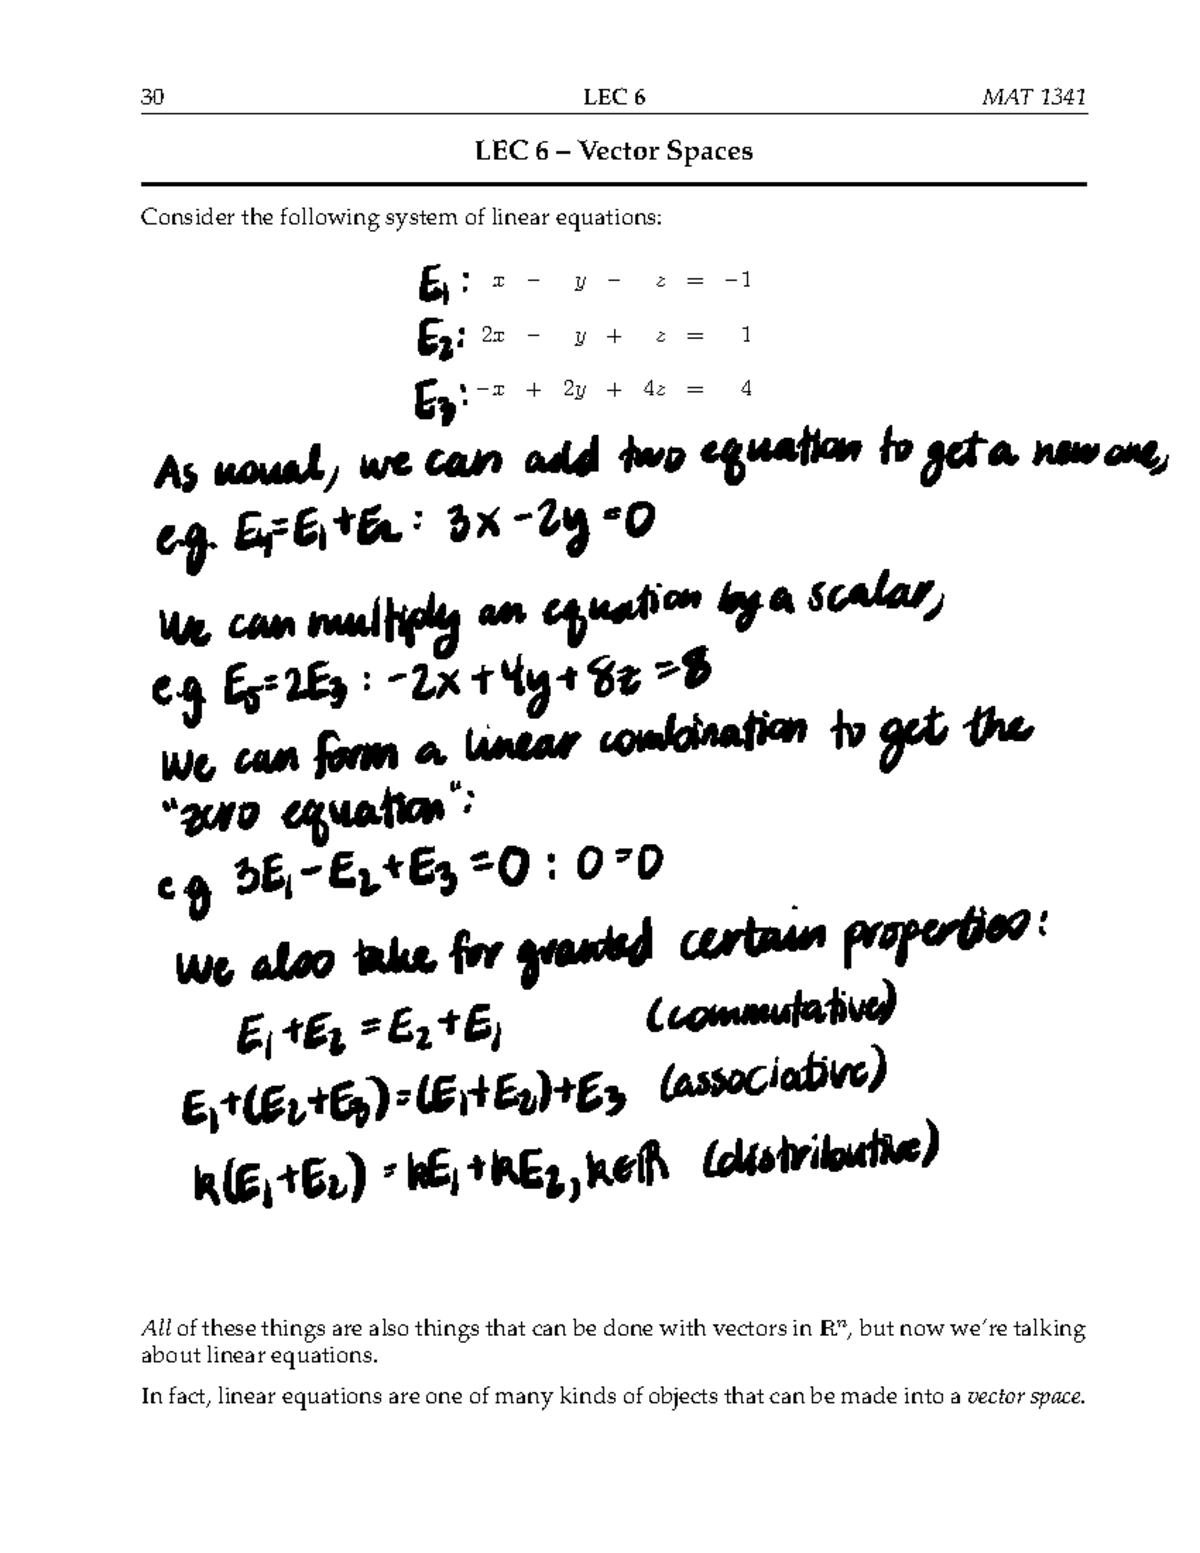 30 LEC 6 MAT 1341
LEC 6 – Vector Spaces
Consider the following system of linear equations:
E₁: x − y − z = −1
E₂: 2x − y + z = 1
E₃: −x + 2y + 4z = 4
As usual, we can add two equation to get a new one,
e.g. E₄=E₁+E₂ : 3x -2y =0
We can multiply an equation by a scalar,
e.g E₅=2E₃ : -2x+4y+8z =8
We can form a linear combination to get the
"zero equation":
e g 3E₁-E₂+E₃ =0 : 0=0
We also take for granted certain properties:
E₁+E₂ =E₂+E₁ (commutative)
E₁+(E₂+E₃)=(E₁+E₂)+E₃ (associative)
k(E₁+E₂) = kE₁+kE₂, k∈ℝ (distributive)
All of these things are also things that can be done with vectors in ℝⁿ, but now we're talking
about linear equations.
In fact, linear equations are one of many kinds of objects that can be made into a vector space.